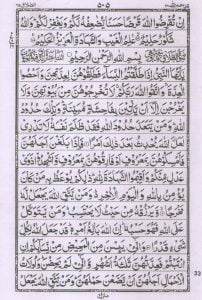 ٥٠٥
اِنْ تُقْرِضُوا اللّٰهَ قَرْضًا حَسَنًا يُّضٰعِفْهُ لَكُمْ وَيَغْفِرْ لَكُمْ وَاللّٰهُ
شَكُوْرٌ حَلِيْمٌ عٰلِمُ الْغَيْبِ وَالشَّهَادَةِ الْعَزِيْزُ الْحَكِيْمُ
بِسْمِ اللّٰهِ الرَّحْمٰنِ الرَّحِيْمِ
يٰۤاَيُّهَا النَّبِيُّ اِذَا طَلَّقْتُمُ النِّسَآءَ فَطَلِّقُوْهُنَّ لِعِدَّتِهِنَّ وَاَحْصُوا
الْعِدَّةَ وَاتَّقُوا اللّٰهَ رَبَّكُمْ لَا تُخْرِجُوْهُنَّ مِنْۢ بُيُوْتِهِنَّ وَلَا
يَخْرُجْنَ اِلَّاۤ اَنْ يَّاْتِيْنَ بِفَاحِشَةٍ مُّبَيِّنَةٍ وَتِلْكَ حُدُوْدُ
اللّٰهِ وَمَنْ يَّتَعَدَّ حُدُوْدَ اللّٰهِ فَقَدْ ظَلَمَ نَفْسَهٗ لَا تَدْرِيْ
لَعَلَّ اللّٰهَ يُحْدِثُ بَعْدَ ذٰلِكَ اَمْرًا فَاِذَا بَلَغْنَ اَجَلَهُنَّ
فَاَمْسِكُوْهُنَّ بِمَعْرُوْفٍ اَوْ فَارِقُوْهُنَّ بِمَعْرُوْفٍ وَّاَشْهِدُوْا ذَوَيْ
عَدْلٍ مِّنْكُمْ وَاَقِيْمُوا الشَّهَادَةَ لِلّٰهِ ذٰلِكُمْ يُوْعَظُ بِهٖ مَنْ كَانَ
يُؤْمِنُ بِاللّٰهِ وَالْيَوْمِ الْاٰخِرِ وَمَنْ يَّتَّقِ اللّٰهَ يَجْعَلْ لَّهٗ
مَخْرَجًا وَّيَرْزُقْهُ مِنْ حَيْثُ لَا يَحْتَسِبُ وَمَنْ يَّتَوَكَّلْ
عَلَى اللّٰهِ فَهُوَ حَسْبُهٗ اِنَّ اللّٰهَ بَالِغُ اَمْرِهٖ قَدْ جَعَلَ اللّٰهُ لِكُلِّ
شَيْءٍ قَدْرًا وَالّٰٓـِٔيْ يَئِسْنَ مِنَ الْمَحِيْضِ مِنْ نِّسَآئِكُمْ اِنِ
ارْتَبْتُمْ فَعِدَّتُهُنَّ ثَلٰثَةُ اَشْهُرٍ وَّالّٰٓـِٔيْ لَمْ يَحِضْنَ وَاُولَاتُ
الْاَحْمَالِ اَجَلُهُنَّ اَنْ يَّضَعْنَ حَمْلَهُنَّ وَمَنْ يَّتَّقِ اللّٰهَ يَجْعَلْ
33